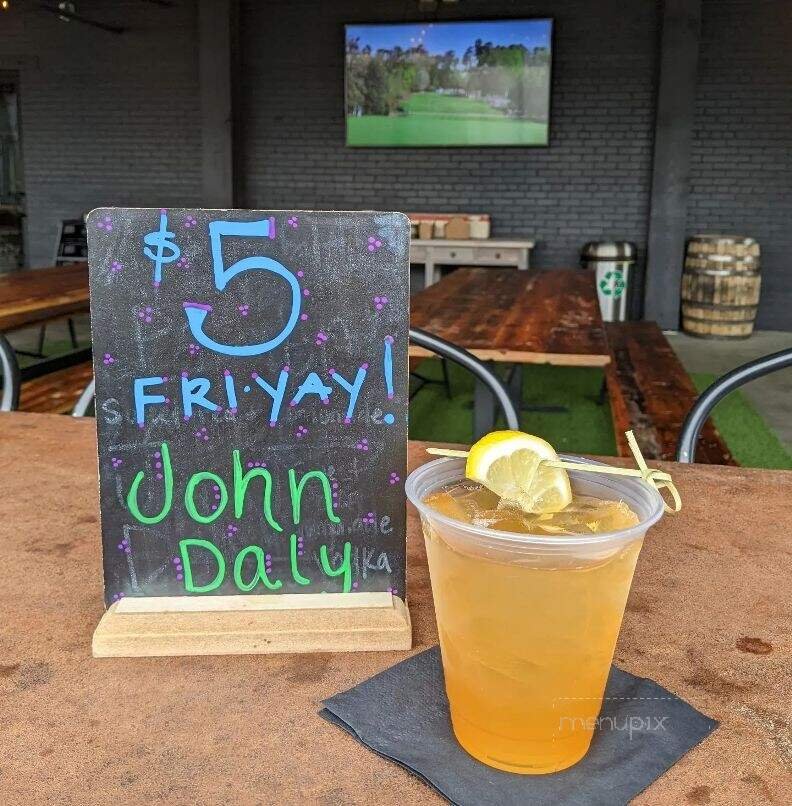 $5
FRI-YAY!
John
Daly
menupix